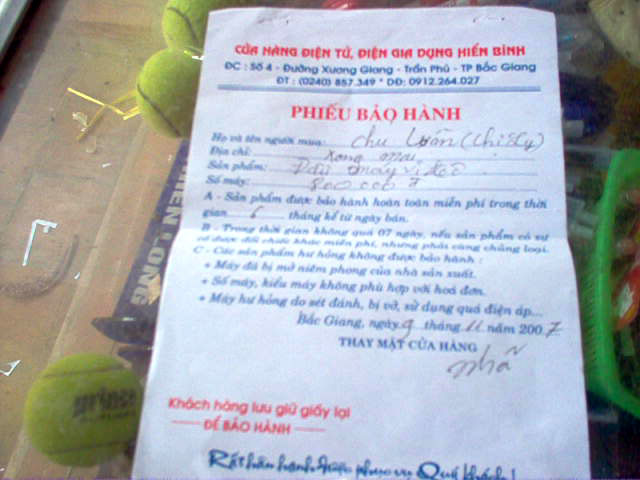 CỬA HÀNG ĐIỆN TỬ, ĐIỆN GIA DỤNG HIỂN BÌNH
ĐC : Số 4 - Đường Xương Giang - Trần Phú - TP Bắc Giang
ĐT : (0240) 857.349 * DĐ: 0912.264.027
PHIẾU BẢO HÀNH
Họ và tên người mua: Chu Luân (Chi Ly)
Địa chỉ: Xong Mai
Sản phẩm: Đầu máy video
Số máy: 800 000 đ
A - Sản phẩm được bảo hành hoàn toàn miễn phí trong thời
gian 6 tháng kể từ ngày bán.
B - Trong thời gian không quá 07 ngày, nếu sản phẩm có sự
cố được đổi chiếc khác miễn phí, nhưng phải cùng chủng loại.
C - Các sản phẩm hư hỏng không được bảo hành :
+ Máy đã bị mở niêm phong của nhà sản xuất.
+ Số máy, kiểu máy không phù hợp với hoá đơn.
+ Máy hư hỏng do sét đánh, bị vỡ, sử dụng quá điện áp...
Bắc Giang, ngày 9 tháng 11 năm 2007
THAY MẶT CỬA HÀNG
Nhã
Khách hàng lưu giữ giấy lại
ĐỂ BẢO HÀNH
Rất hân hạnh được phục vụ Quý khách!
THIEN LONG